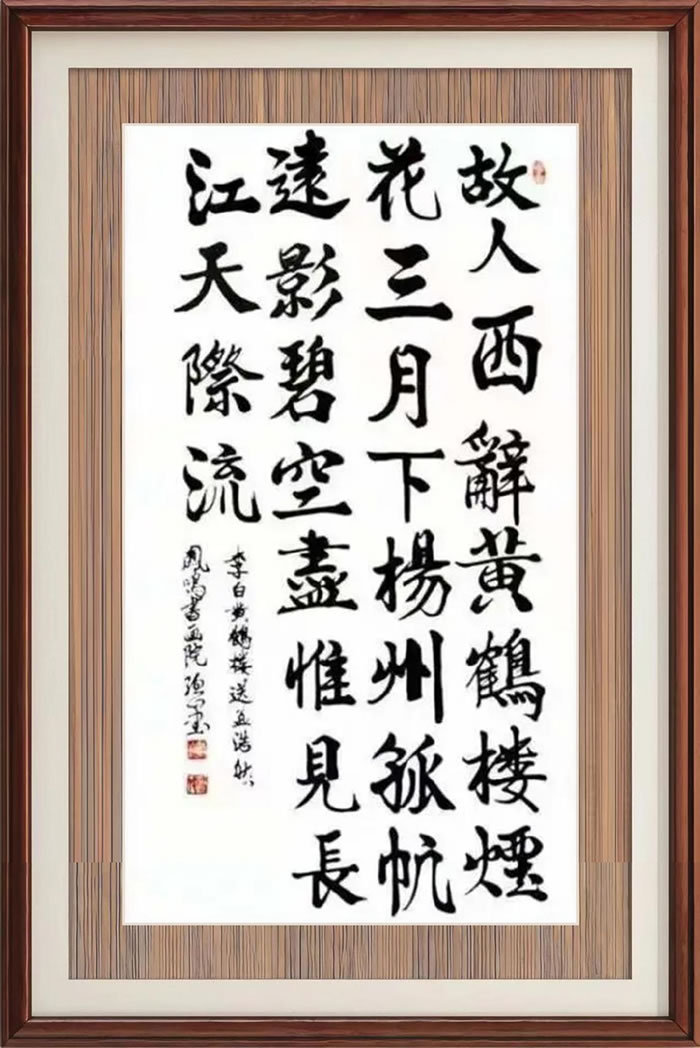 故人西辭黄鶴楼煙
花三月下楊州孤帆
遠影碧空盡惟見長
江天際流
李白黄鶴楼送孟浩然
鳳鳴書画院